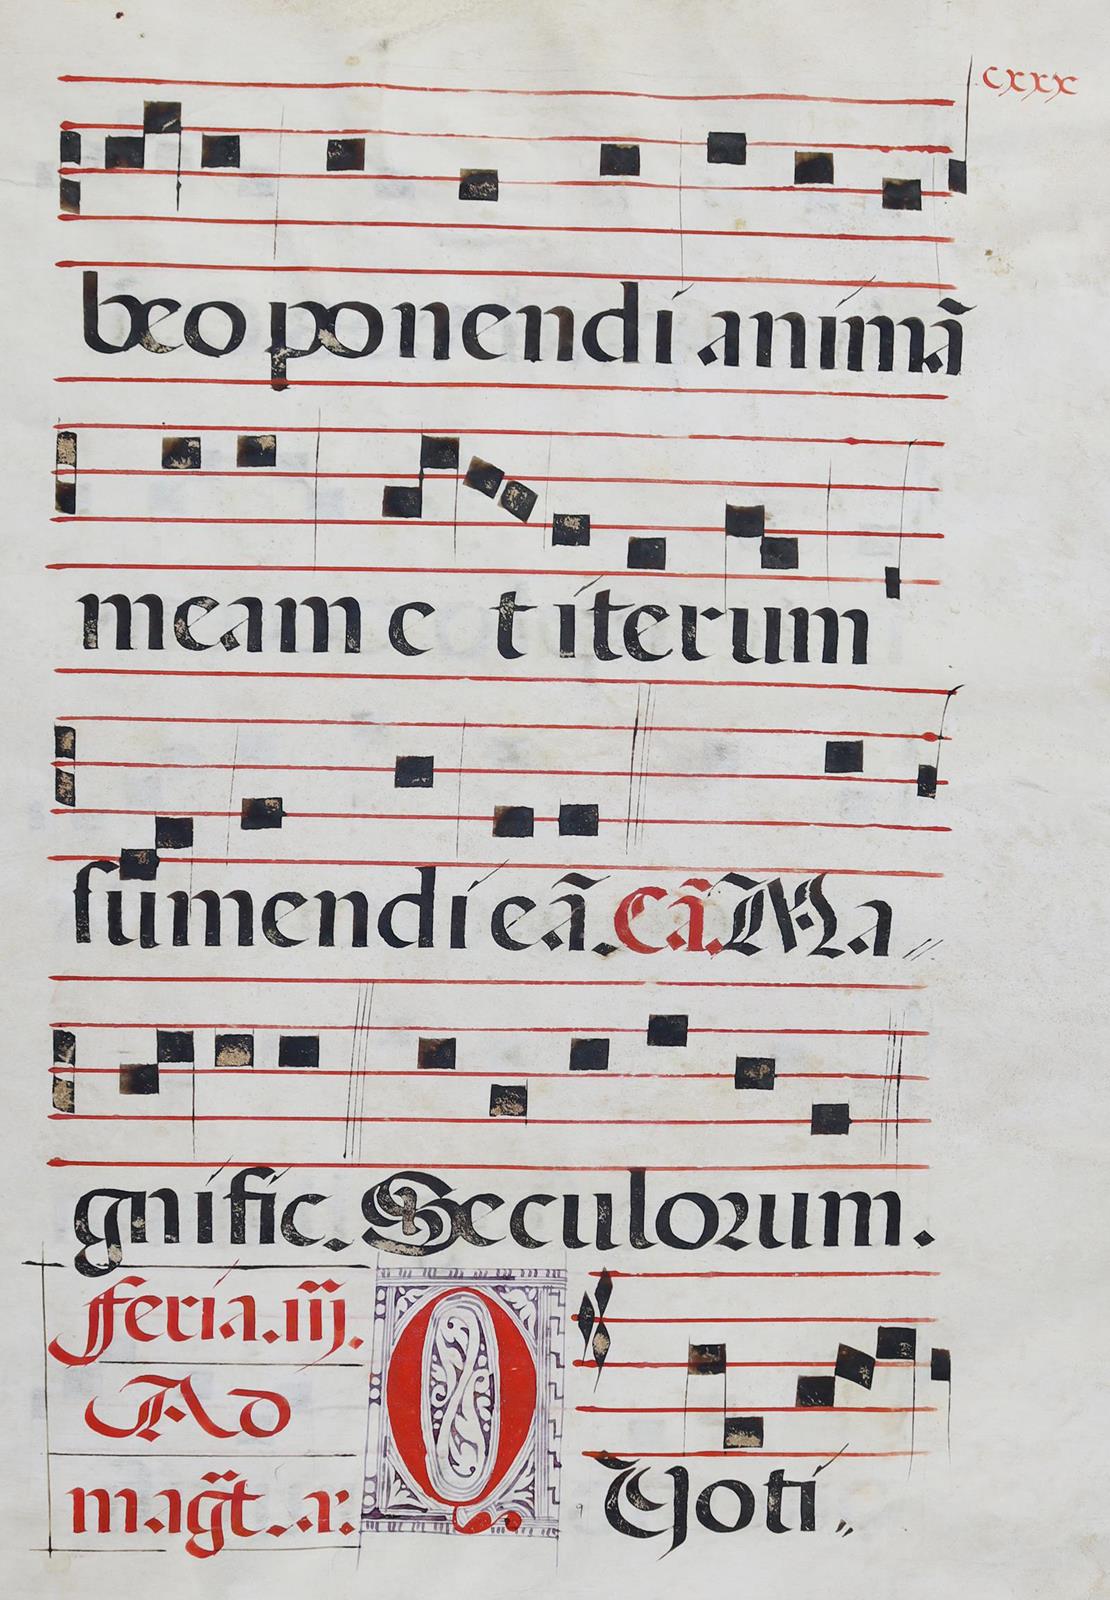 cxxx
beo ponendi animã
meam e t iterum
sumendi eã. Cã. Ma„
gnific. Seculorum.
feria. iij.
Ad
mag̃t. a:
Quoti„